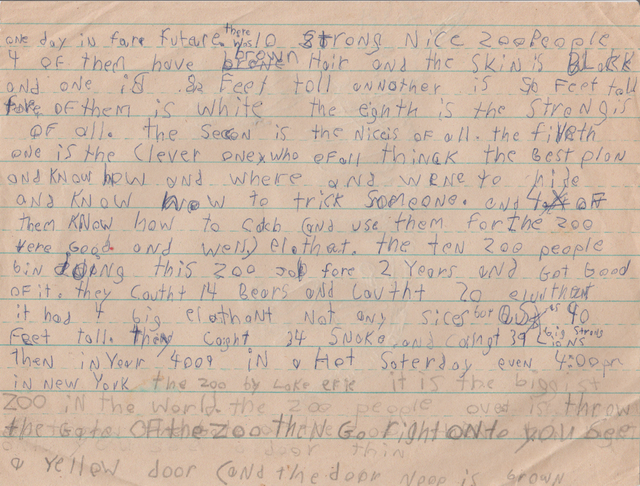 one day in fare Future. there was 10 Strong Nice zoo People
4 OF them have brown Hair and the SKin is BLack
and one is Feet tall annother is 50 Feet tall
OF them is white the eghth is the Strongis
OF all. the Secon is the Niceis OF all. the fiveth
one is the Clever one who OF all Thinak the Best plan
and Know how and where and wene to hide
and KNow How to trick Someone. and 4 OF
them KNow how to (and use them for the zoo
vere Good and well) the ten zoo people
bin doing this zoo Job fore 2 Years and Got Good
OF it. they Coutht 14 Bears and Coutht 20
it had 4 big Not any sices but as 90
Feet tall. they Caght 34 Snake and Caught 39 big Strong Lions
Then in Year 4009 in a Hot Saterday even 4:00pm
in New York the zoo by Lake erie it is the biggist
zoo in the World. the zoo people over is throw
the Gate OF the zoo theN Go right ONto you See
a door thin
a Yellow door (and the door Noop is brown